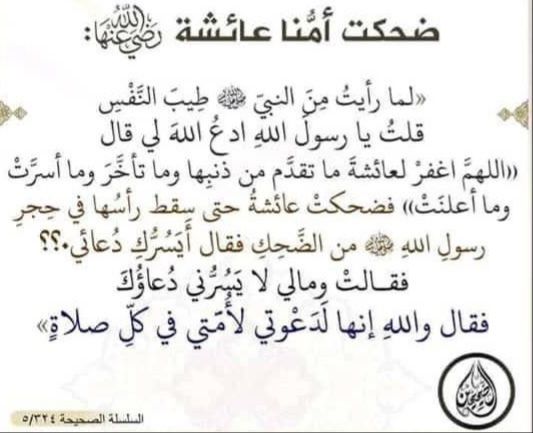 ضحكت أمُّنا عائشة رَضِيَ اللَّهُ عَنْهَا:
«لما رأيتُ مِنَ النبيّ ﷺ طِيبَ النَّفْسِ
قلتُ يا رسولَ اللهِ ادعُ اللهَ لي قال
((اللهمَّ اغفرْ لعائشةَ ما تقدَّم من ذنبِها وما تأخَّرَ وما أسرَّتْ
وما أعلنَتْ)) فضحكتْ عائشةُ حتى سقط رأسُها في حِجرِ
رسولِ اللهِ ﷺ من الضَّحِكِ فقال أَيَسُرُّكِ دُعائي.؟؟
فقـالتْ ومالي لا يَسُرُّني دُعاؤُكَ
فقال واللهِ إنها لَدَعْوتي لأُمَّتي في كلِّ صلاةٍ»
السلسلة الصحيحة ٥/٣٢٤